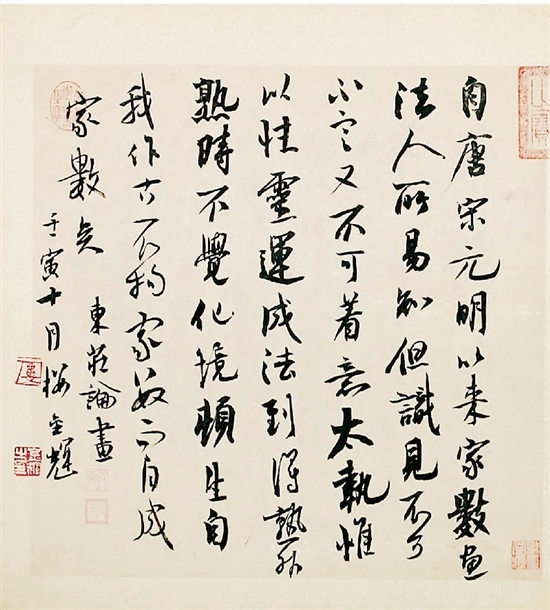 自唐宋元明以来家數画
法人所易知但識見不可
不定又不可着意太執惟
以性靈運成法到得熟外
熟時不覺化境頓生自
我作古不拘家数而自成
家數矣 東莊論畫
壬寅十月 金輝